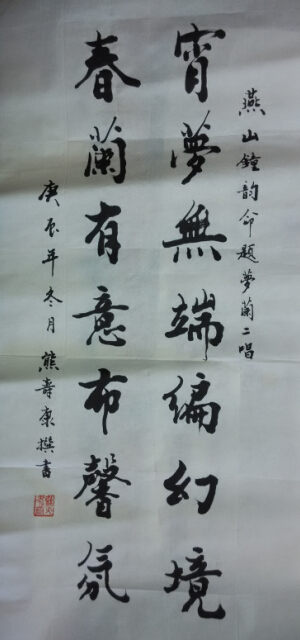 燕山鐘韵命题夢蘭二唱
宵夢無端編幻境
春蘭有意布馨氛
庚辰年冬月 熊壽康撰書